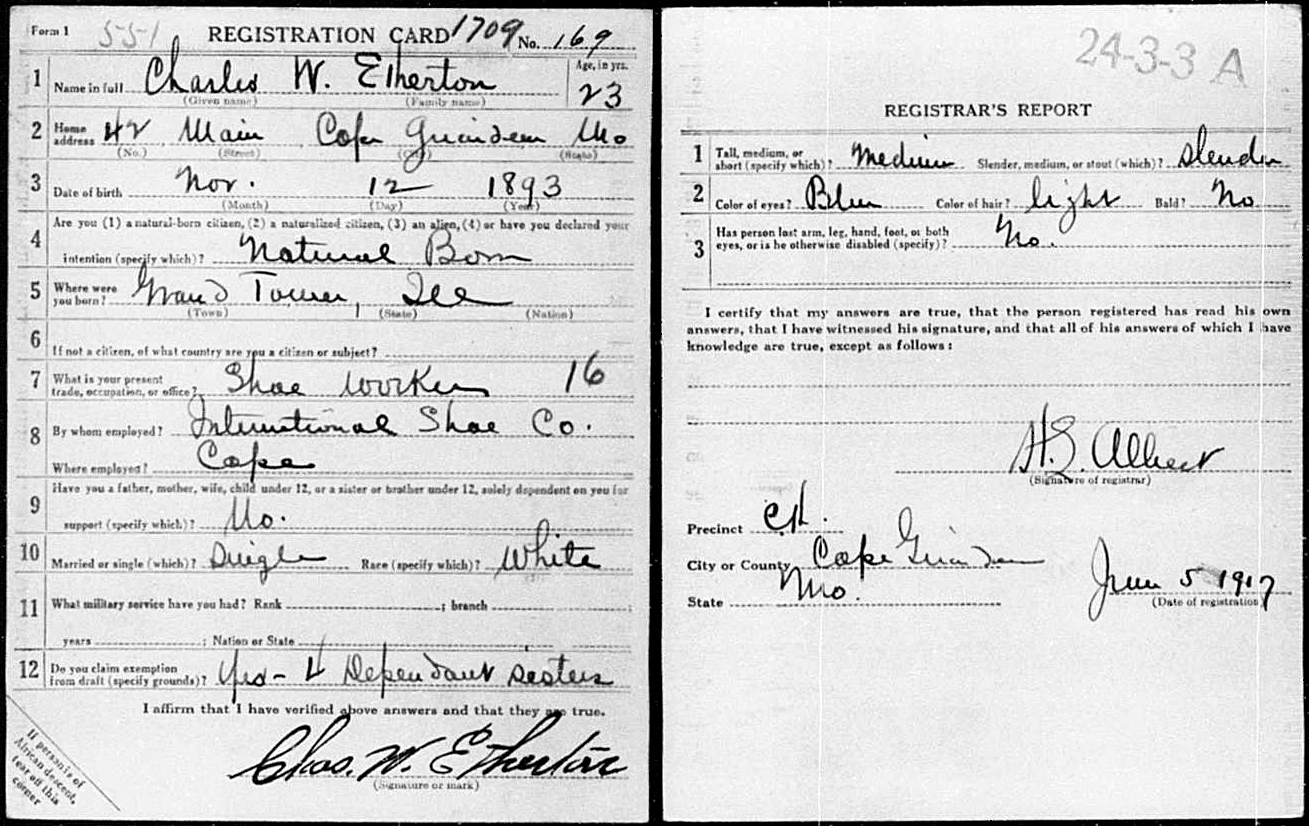 Form 1 5-5-1 REGISTRATION CARD 1709 No. 169
1 Name in full Charles W. Etherton Age, in yrs. 23
(Given name) (Family name)
2 Home address 42 Main Cape Girardeau Mo
(No.) (Street) (City) (State)
3 Date of birth Nov. 12 1893
(Month) (Day) (Year)
4 Are you (1) a natural-born citizen, (2) a naturalized citizen, (3) an alien, (4) or have you declared your
intention (specify which)? Natural Born
5 Where were you born? Grand Tower, Ill
(Town) (State) (Nation)
6 If not a citizen, of what country are you a citizen or subject?
7 What is your present trade, occupation, or office? Shoe worker 16
8 By whom employed? International Shoe Co.
Where employed? Cape
9 Have you a father, mother, wife, child under 12, or a sister or brother under 12, solely dependent on you for
support (specify which)? No.
10 Married or single (which)? Single Race (specify which)? White
11 What military service have you had? Rank ; branch ;
years ; Nation or State
12 Do you claim exemption from draft (specify grounds)? Yes - 4 Dependant sisters
I affirm that I have verified above answers and that they are true.
Chas. W. Etherton
(Signature or mark)
If person is of
African descent,
tear off this
corner
24-3-3 A
REGISTRAR'S REPORT
1 Tall, medium, or short (specify which)? Medium Slender, medium, or stout (which)? Slender
2 Color of eyes? Blue Color of hair? light Bald? No
3 Has person lost arm, leg, hand, foot, or both
eyes, or is he otherwise disabled (specify)? No.
I certify that my answers are true, that the person registered has read his own
answers, that I have witnessed his signature, and that all of his answers of which I have
knowledge are true, except as follows:
H. S. Albert
(Signature of registrar)
Precinct
City or County Cape Girardeau
State Mo. June 5 1917
(Date of registration)